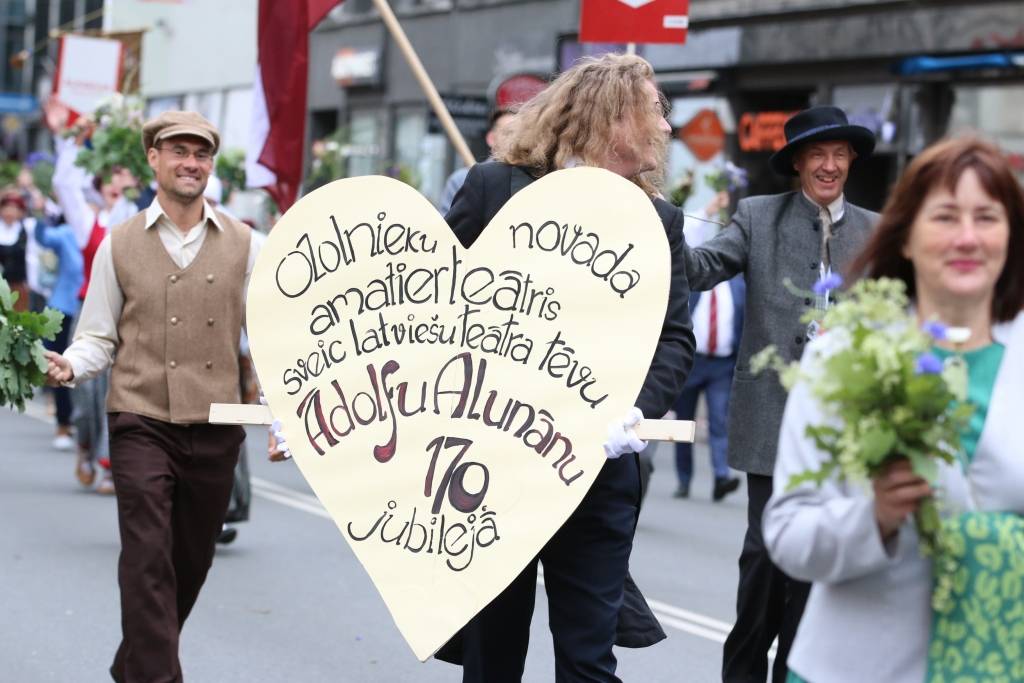 Ozolnieku novada
amatierteātris
sveic latviešu teātra tēvu
Adolfu Alunānu
170
jubilejā